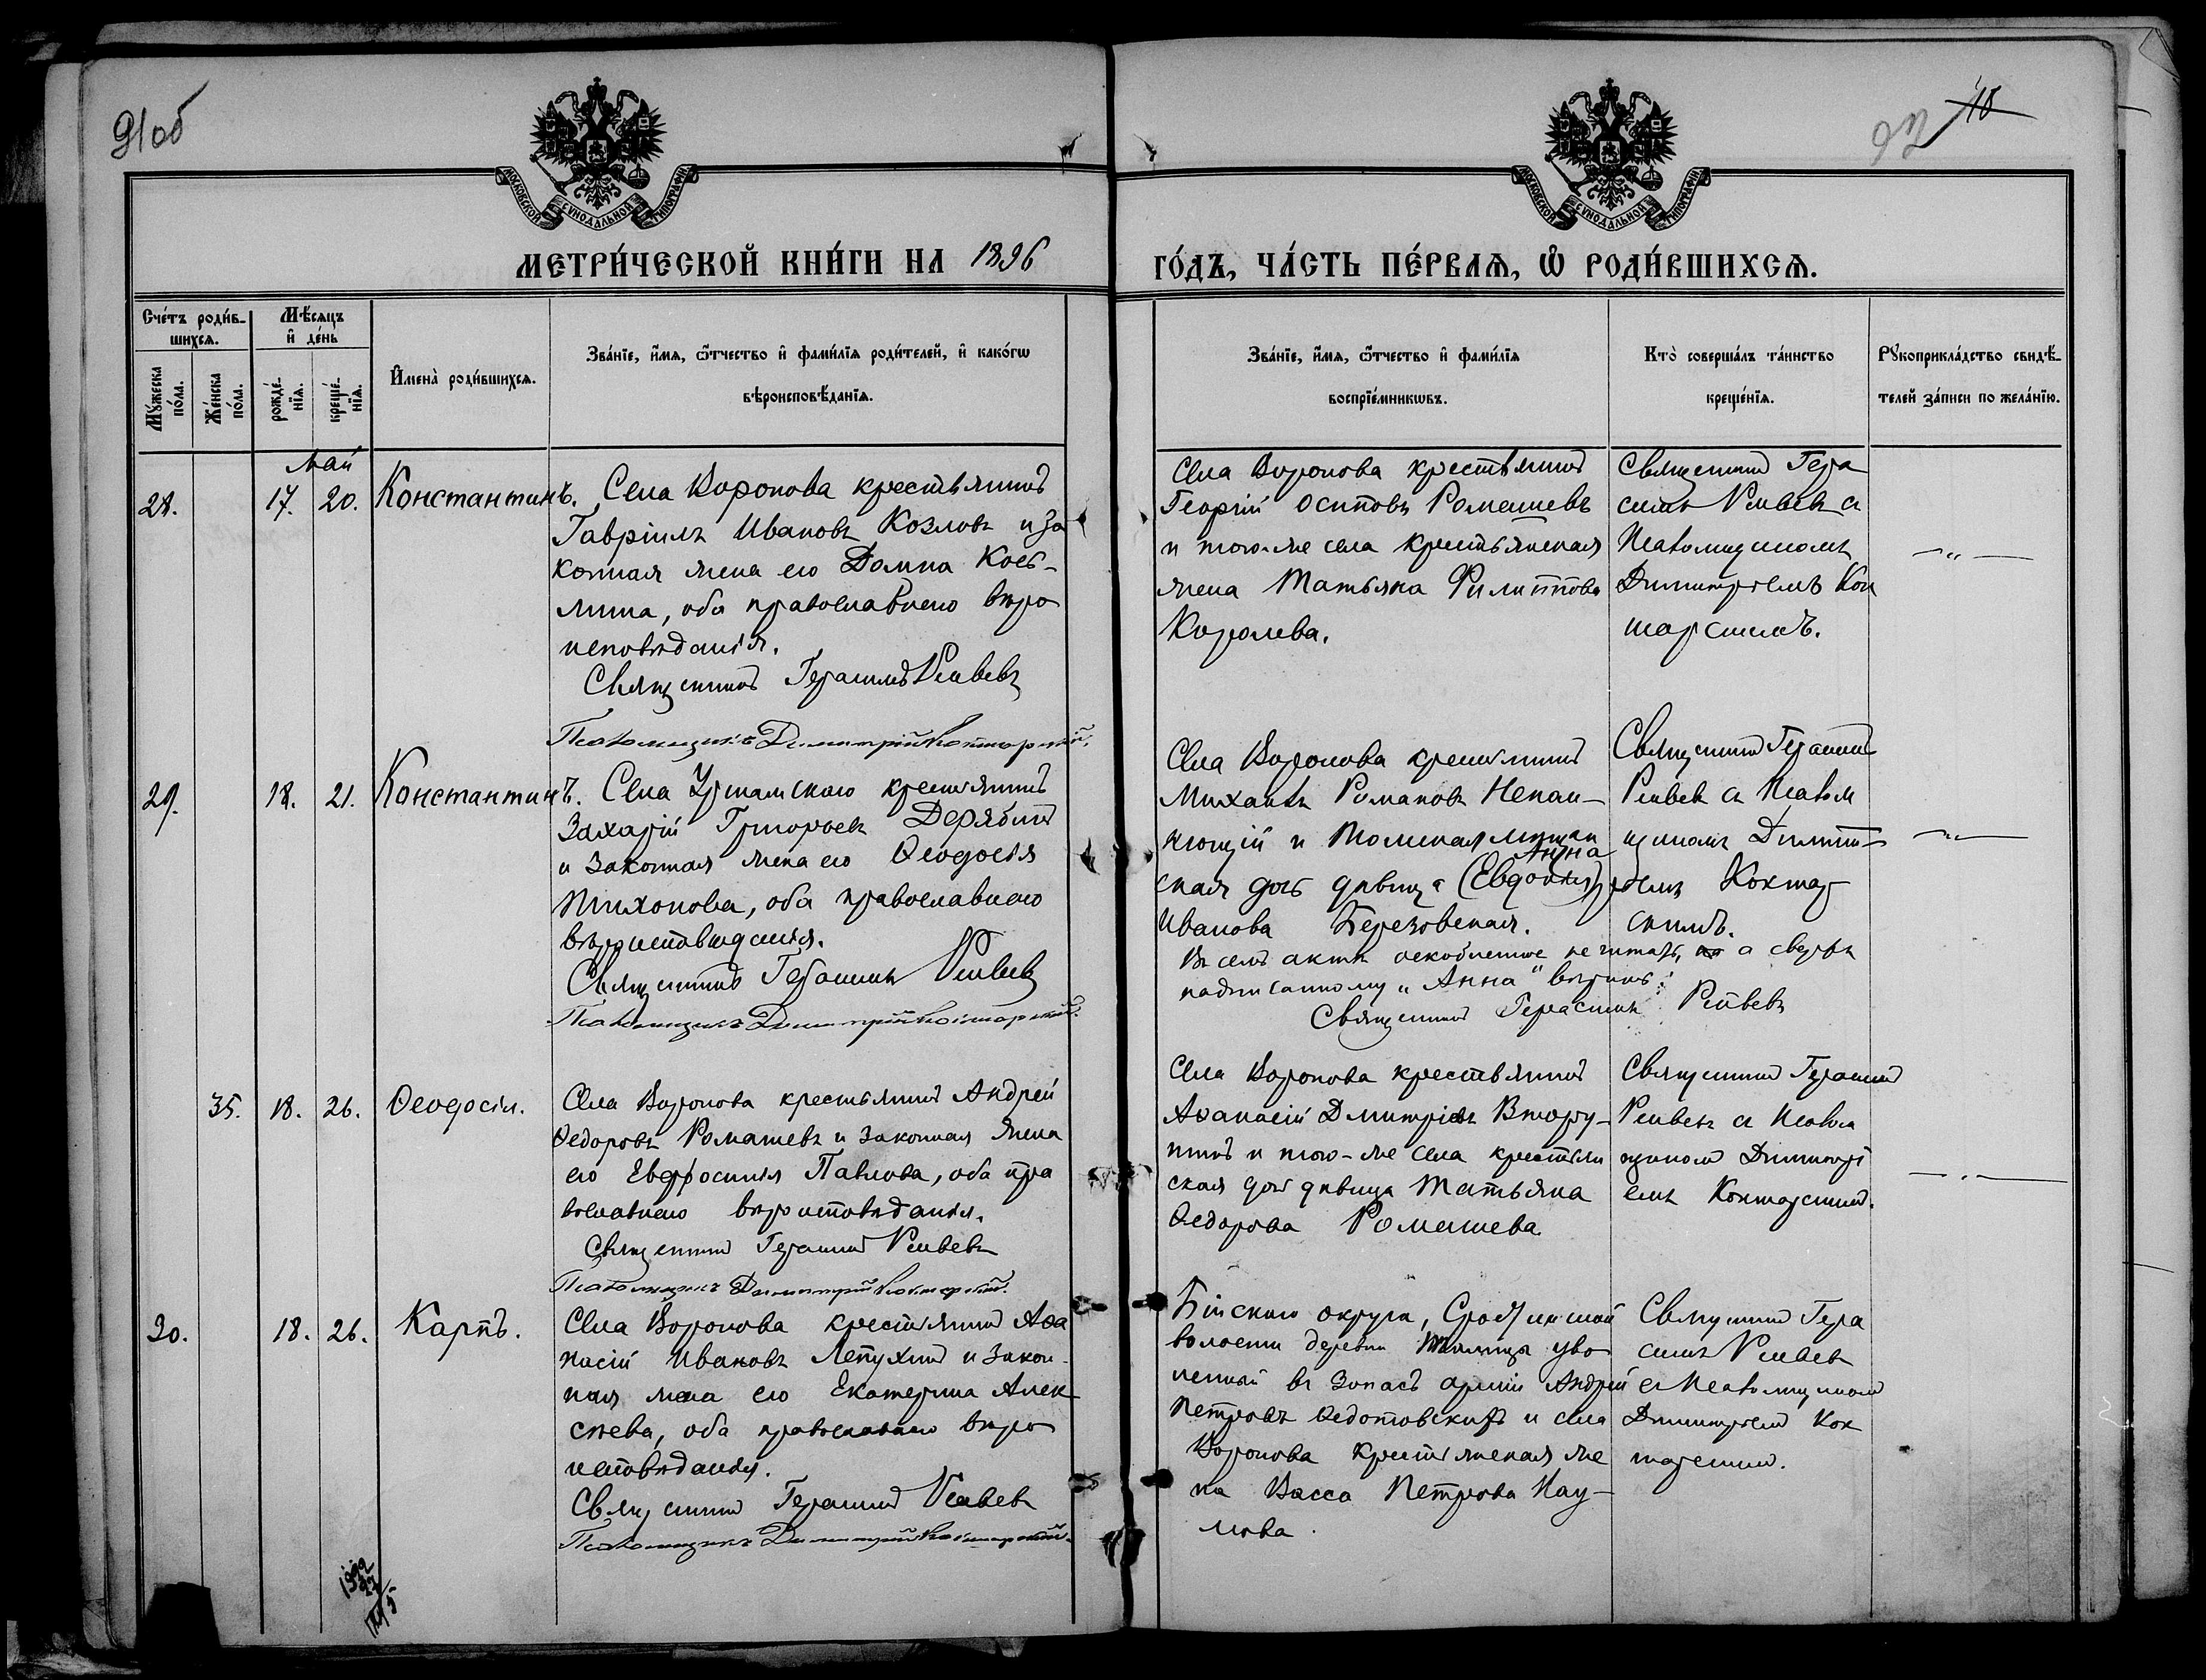 91об
92 10
МОСКОВСКОЙ СѴНОДАЛЬНОЙ ТИПОГРАФІИ
МОСКОВСКОЙ СѴНОДАЛЬНОЙ ТИПОГРАФІИ
МЕТРИ́ЧЕСКОЙ КНИ́ГИ НА 1896
ГО́ДЪ, ЧА́СТЬ ПЕ́РВАѦ, Ѽ РОДИ́ВШИХСѦ.
Сче́тъ роди́в-
шихсѧ.
Мꙋ́жеска по́ла.
Же́нска по́ла.
Мѣ́сѧцъ
и҆ де́нь
рожде́-
нїѧ.
креще́-
нїѧ.
И҆мена̀ роди́вшихсѧ.
Зва́нїе, и҆́мѧ, ѻ҆́тчество и҆ фами́лїѧ роди́телей, и҆ како́гѡ
вѣроисповѣ́данїѧ.
Зва́нїе, и҆́мѧ, ѻ҆́тчество и҆ фами́лїѧ
воспрїе́мникѡвъ.
Кто̀ соверша́лъ та́инство
креще́нїѧ.
Рꙋкоприкла́дство свидѣ́-
телей за́писи по жела́нїю.
Май
28. 17. 20. Константинъ.
Села Воронова крестьянинъ
Гавріилъ Ивановъ Козловъ и за
конная жена его Домна Кось-
мина, оба православнаго вѣро
исповѣданія.
Священникъ Герасимъ
Псаломщикъ Димитрій
Села Воронова крестьянинъ
Георгій Осиповъ Ромашевъ
и того-же села крестьянская
жена Татьяна Филиппова
Королева.
Священникъ Гера
симъ съ
Псаломщикомъ
Димитріемъ
29. 18. 21. Константинъ.
Села Уртамскаго крестьянинъ
Захарій Григорьевъ Дерябинъ
и законная жена его Ѳеодосія
Тихонова, оба православнаго
вѣроисповѣданія.
Священникъ Герасимъ
Псаломщикъ Димитрій
Села Воронова крестьянинъ
Михаилъ Романовъ
и Томская мѣщан
Анна
ская дочь дѣвица (Евдокія)
Иванова Березовская.
Въ семъ актѣ оскобленное не читать, а сверхъ
надписанному „Анна" вѣрить.
Священникъ Герасимъ
Священникъ Герасимъ
съ Псалом
щикомъ Димит-
ріемъ
35. 18. 26. Ѳеодосія.
Села Воронова крестьянинъ Андрей
Ѳедоровъ Ромашевъ и законная жена
его Евфросинія Павлова, оба пра
вославнаго вѣроисповѣданія.
Священникъ Герасимъ
Псаломщикъ Димитрій
Села Воронова крестьянинъ
Аѳанасій Дмитріевъ Втору-
шинъ и того-же села крестьян
ская дочь дѣвица Татьяна
Ѳедорова Ромашева
Священникъ Герасимъ
съ Псалом
щикомъ Димитрі
емъ
30. 18. 26. Карпъ.
Села Воронова крестьянинъ Аѳа
насій Ивановъ Лепухинъ и закон-
ная жена его Екатерина Алек
сѣева, оба православнаго вѣро
исповѣданія.
Священникъ Герасимъ
Псаломщикъ Димитрій
Бійскаго округа,
волости деревни уво
ленный въ запасъ арміи Андрей
Петровъ Ѳедотовскихъ и села
Воронова крестьянская же
на Васса Петрова Нау-
мова.
Священникъ Гера
симъ
съ Псаломщикомъ
Димитріемъ